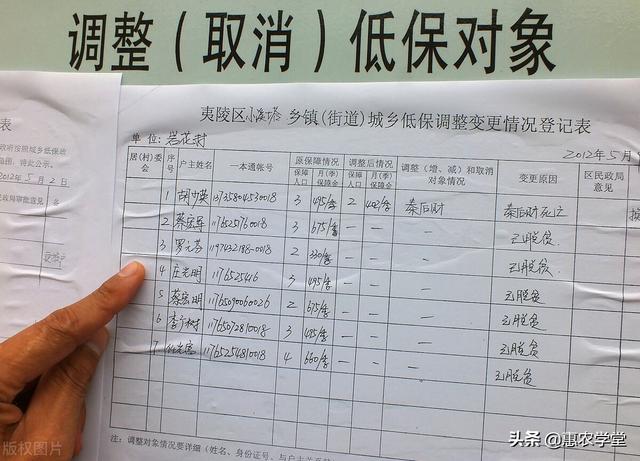 调整（取消）低保对象
夷陵区小溪塔乡镇(街道)城乡低保调整变更情况登记表
单位:岩花村 2012年5月
居(村)委会 序号 户主姓名 一本通帐号 原保障情况 调整后情况 调整（增、减）和取消对象情况 变更原因 区民政局意见
保障人口 月(季)保障金 保障人口 月(季)保障金
1 胡少英 3 495/季 2 402/季 秦后财 秦后财死亡
2 蔡宏导 11765251760018 3 675/季 — — — 已脱贫
3 罗元芬 1197432188-0018 2 330/季 — — — 已脱贫
4 庄光明 1176525416 3 495/季 — — — 已脱贫
5 蔡宏明 11765090060026 2 675/季 — — — 已脱贫
6 李广树 11765072810018 3 495/季 — — — 已脱贫
7 11765254810018 4 660/季 — — — 已脱贫
注: 调整对象情况要详细（姓名、身份证号、与户主关系
表
政府按照城乡低保政
范围，将此公示。
2012年5月2日
民政局审批意见
版权图片
头条@惠农学堂